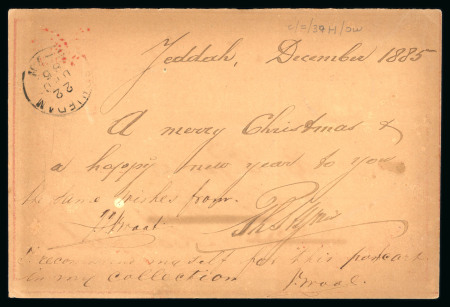 c/a/394/ow
Jeddah, December 1885
A merry Christmas &
a happy new year to you
the same wishes from
I recommend my self for this postcard
in my collection